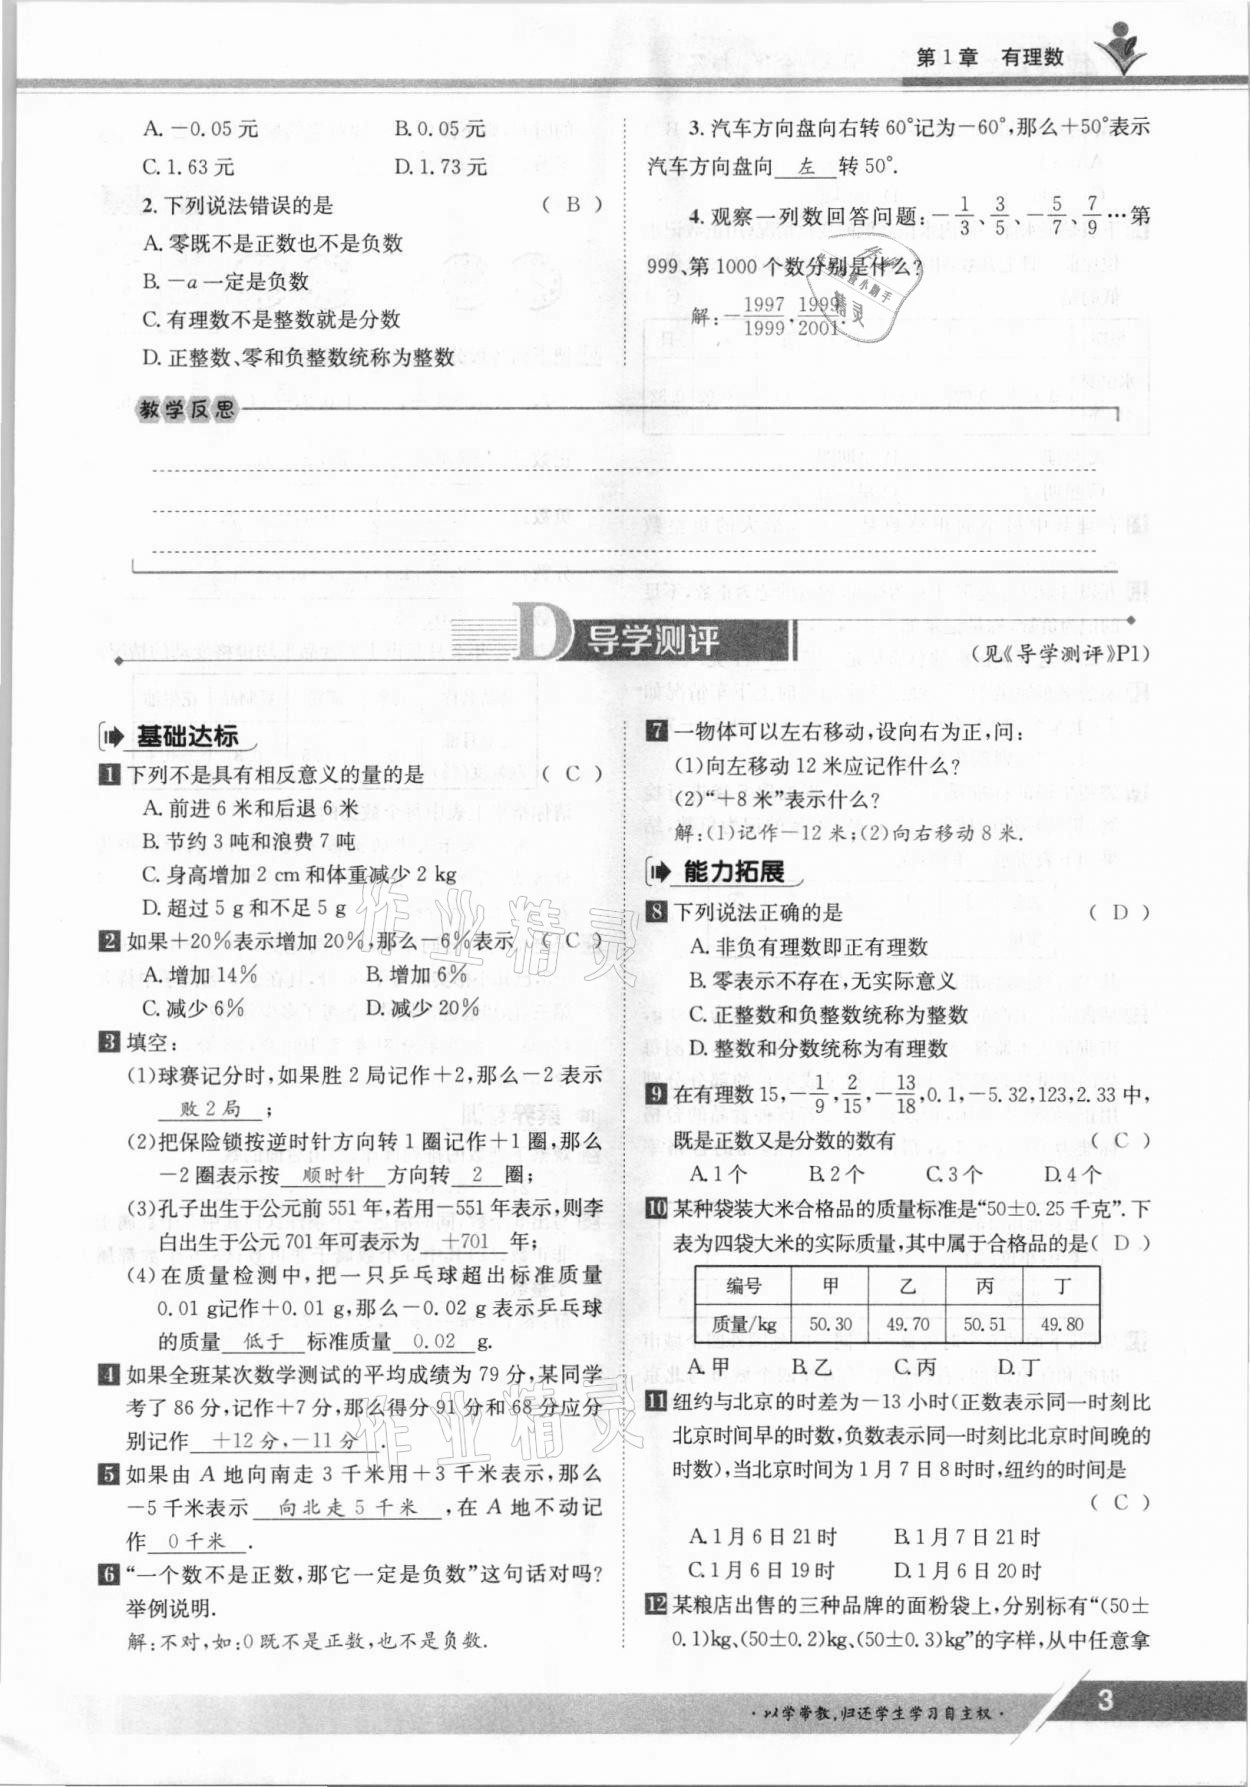 第1章 有理数
A. －0.05 元 B. 0.05 元
C. 1.63 元 D. 1.73 元
2. 下列说法错误的是 ( B )
A. 零既不是正数也不是负数
B. －a 一定是负数
C. 有理数不是整数就是分数
D. 正整数、零和负整数统称为整数
3. 汽车方向盘向右转 60°记为－60°,那么＋50°表示
汽车方向盘向 左 转 50°.
4. 观察一列数回答问题:－1/3、3/5、－5/7、7/9…第
999、第 1000 个数分别是什么?
解:－1997/1999.1999/2001.
教学反思
D 导学测评
(见《导学测评》P1)
基础达标
1 下列不是具有相反意义的量的是 ( C )
A. 前进 6 米和后退 6 米
B. 节约 3 吨和浪费 7 吨
C. 身高增加 2 cm 和体重减少 2 kg
D. 超过 5 g 和不足 5 g
2 如果＋20%表示增加 20%,那么－6%表示 ( C )
A. 增加 14% B. 增加 6%
C. 减少 6% D. 减少 20%
3 填空:
(1)球赛记分时,如果胜 2 局记作＋2,那么－2 表示
败 2 局 ;
(2)把保险锁按逆时针方向转 1 圈记作＋1 圈,那么
－2 圈表示按 顺时针 方向转 2 圈;
(3)孔子出生于公元前 551 年,若用－551 年表示,则李
白出生于公元 701 年可表示为 +701 年;
(4)在质量检测中,把一只乒乓球超出标准质量
0.01 g记作＋0.01 g,那么－0.02 g 表示乒乓球
的质量 低于 标准质量 0.02 g.
4 如果全班某次数学测试的平均成绩为 79 分,某同学
考了 86 分,记作＋7 分,那么得分 91 分和 68 分应分
别记作 +12 分,－11 分 .
5 如果由 A 地向南走 3 千米用＋3 千米表示,那么
－5 千米表示 向北走 5 千米 ,在 A 地不动记
作 0 千米 .
6 “一个数不是正数,那它一定是负数”这句话对吗?
举例说明.
解:不对,如:0 既不是正数,也不是负数.
7 一物体可以左右移动,设向右为正,问:
(1)向左移动 12 米应记作什么?
(2)“＋8 米”表示什么?
解:(1)记作－12 米;(2)向右移动 8 米.
能力拓展
8 下列说法正确的是 ( D )
A. 非负有理数即正有理数
B. 零表示不存在,无实际意义
C. 正整数和负整数统称为整数
D. 整数和分数统称为有理数
9 在有理数 15,－1/9,2/15,－13/18,0.1,－5.32,123,2.33 中,
既是正数又是分数的数有 ( C )
A. 1 个 B. 2 个 C. 3 个 D. 4 个
10 某种袋装大米合格品的质量标准是“50±0.25 千克”.下
表为四袋大米的实际质量,其中属于合格品的是( D )
编号 甲 乙 丙 丁
质量/kg 50.30 49.70 50.51 49.80
A. 甲 B. 乙 C. 丙 D. 丁
11 纽约与北京的时差为－13 小时(正数表示同一时刻比
北京时间早的时数,负数表示同一时刻比北京时间晚的
时数),当北京时间为 1 月 7 日 8 时时,纽约的时间是
( C )
A. 1 月 6 日 21 时 B. 1 月 7 日 21 时
C. 1 月 6 日 19 时 D. 1 月 6 日 20 时
12 某粮店出售的三种品牌的面粉袋上,分别标有“(50±
0.1)kg、(50±0.2)kg、(50±0.3)kg”的字样,从中任意拿
作业精灵
作业精灵
·以学带教,归还学生学习自主权·
3